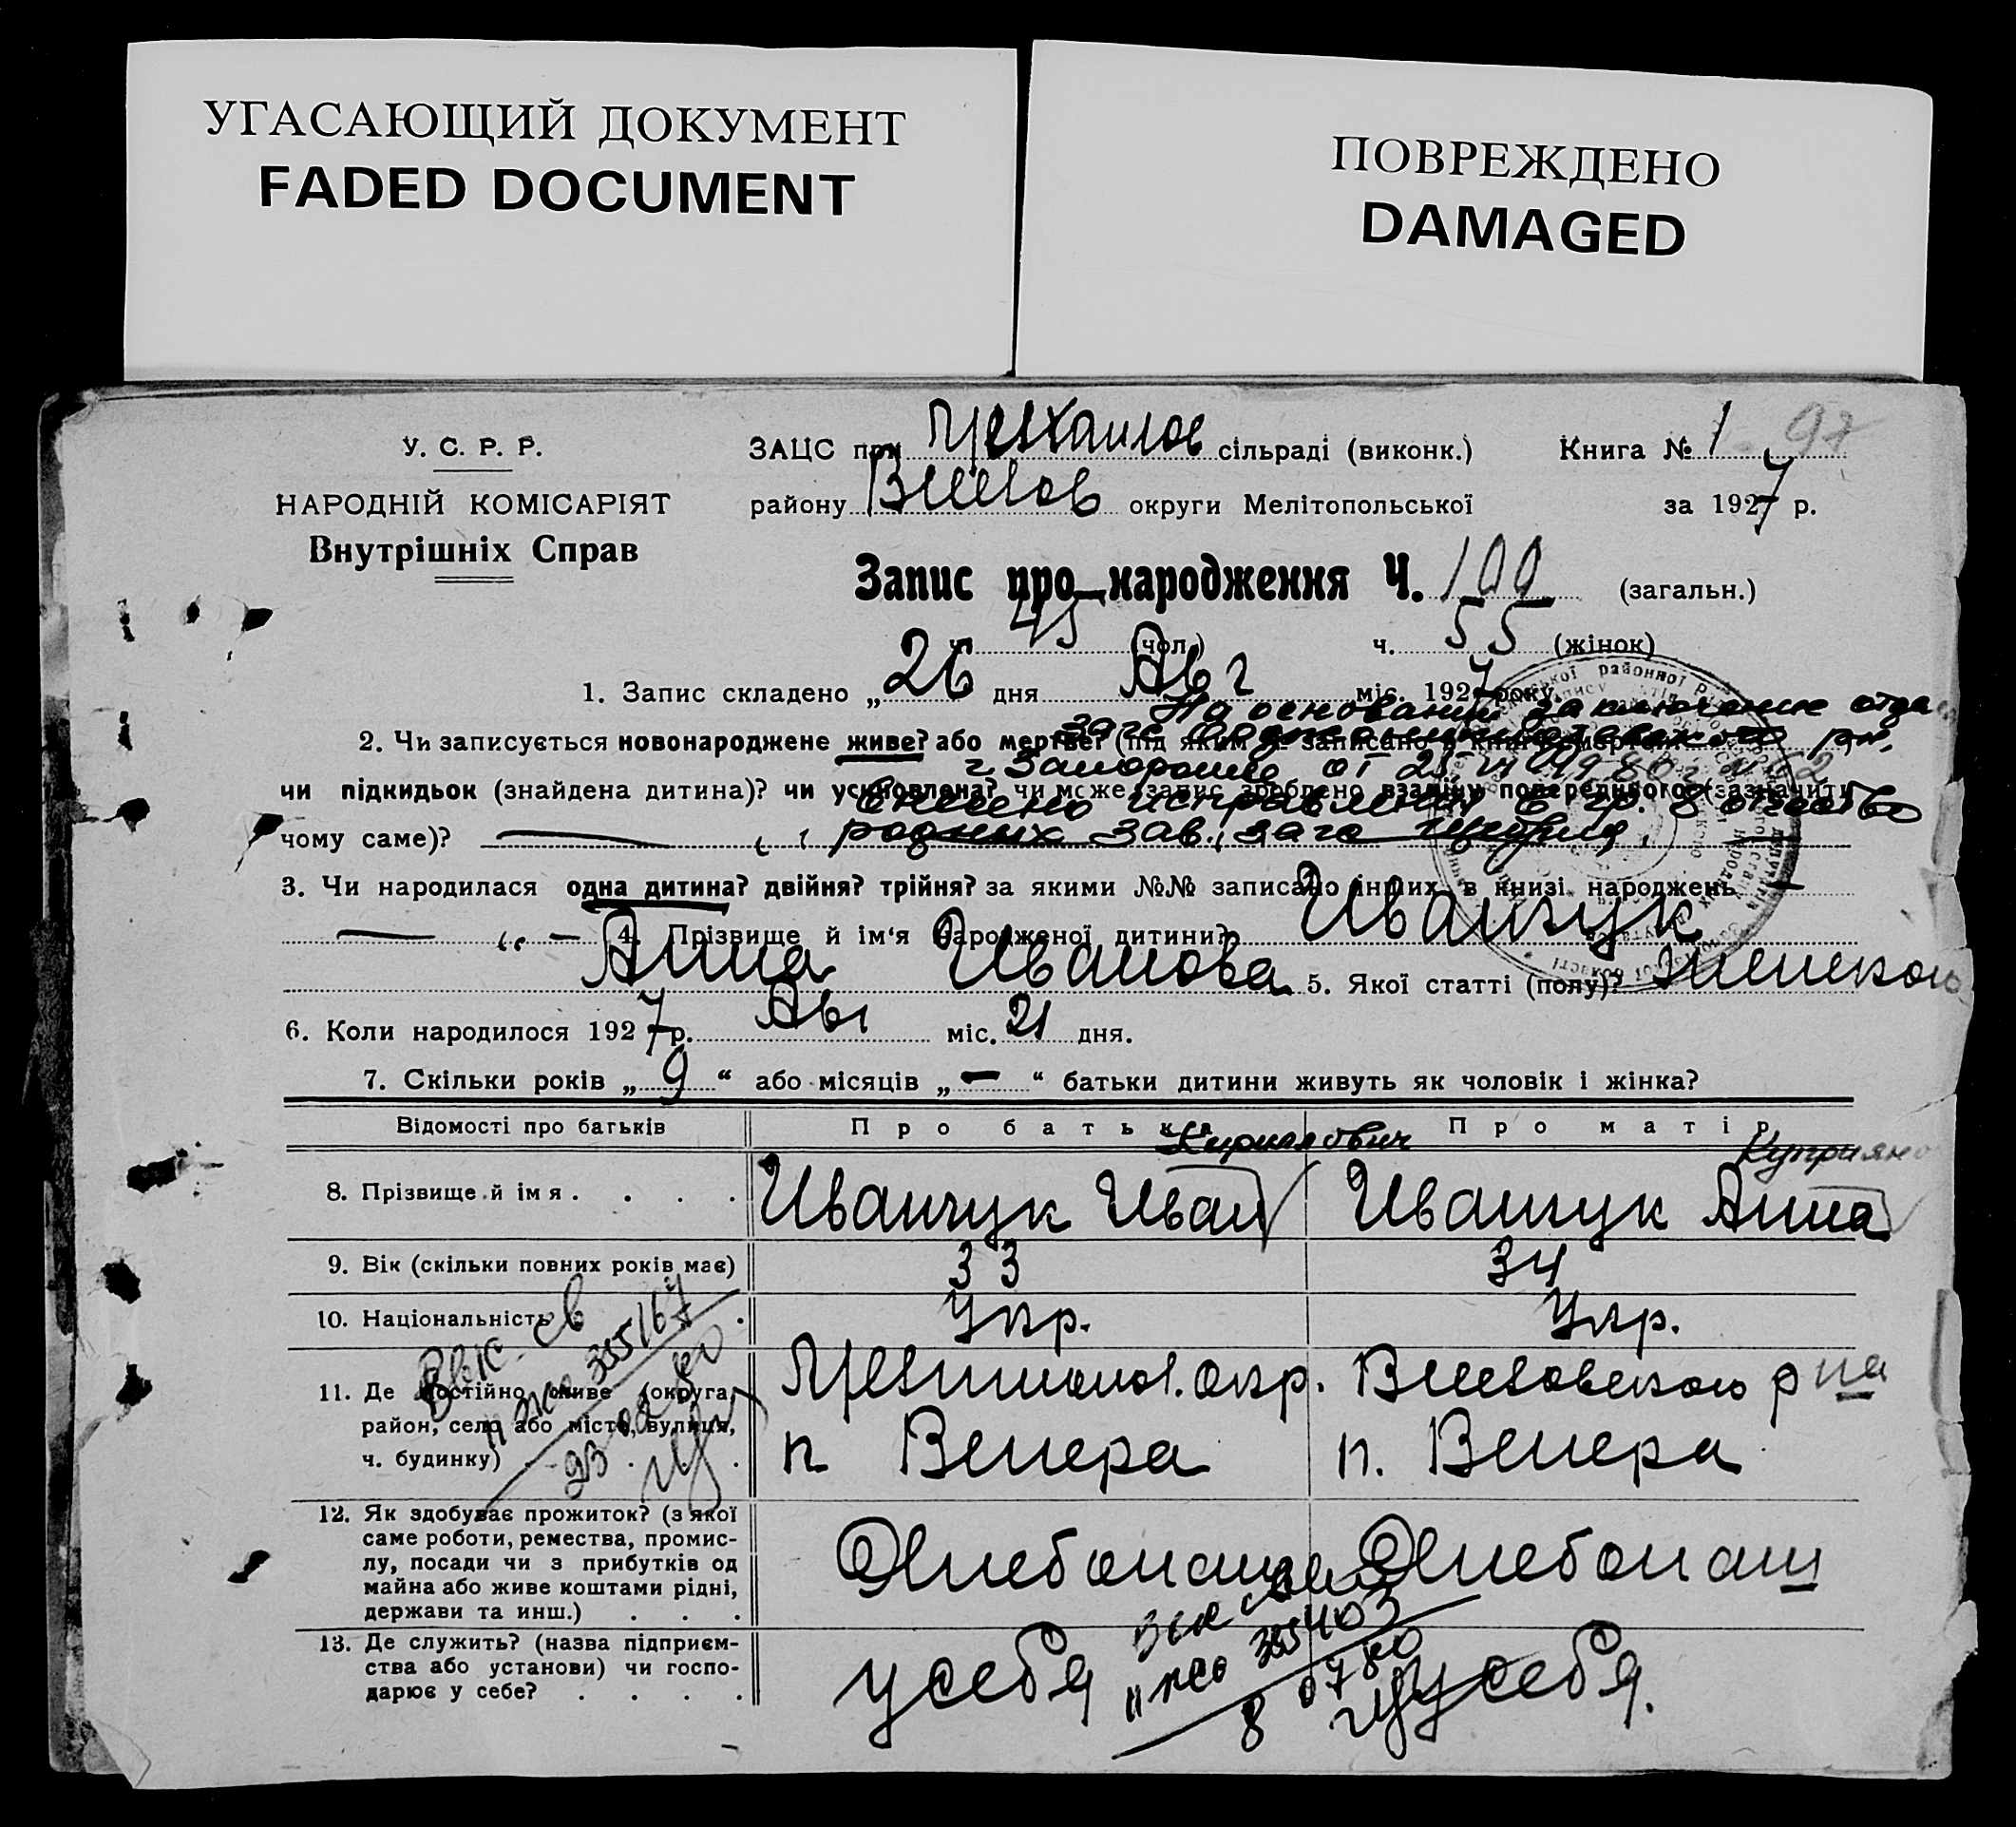 УГАСАЮЩИЙ ДОКУМЕНТ
FADED DOCUMENT
ПОВРЕЖДЕНО
DAMAGED
У. С. Р. Р.
НАРОДНІЙ КОМІСАРІЯТ
Внутрішніх Справ
ЗАЦС при сільраді (виконк.)
району округи Мелітопольської
Книга № 1 97
за 1927 р.
Запис про народження Ч. 100 (загальн.)
ч. 45 (чол.) ч. 55 (жінок)
1. Запис складено „26 дня Авг міс. 1927 року
На основании заключение отдела
2. Чи записується новонароджене живе? або мертве? (під яким №. записано в книгу мертвих
загс р-на
г. Запорожье от 23
чи підкидьок (знайдена дитина)? чи усиновлена? чи може запис зроблено взаміну попереднього? (зазначити
внесено исправления в гр. 8 отчество
чому саме)?
родных Зав. загс
3. Чи народилася одна дитина? двійня? трійня? за якими №№ записано інших в книзі народжень —
4. Прізвище й ім'я народженої дитини? Иванчук
Анна Иванова 5. Якої статті (полу)? женского
6. Коли народилося 1927 р. Авг міс. 21 дня.
7. Скільки років „ 9 “ або місяців „ — “ батьки дитини живуть як чоловік і жінка?
Відомості про батьків Про батька Про матір
Кириллович Куприяно
8. Прізвище й ім'я . . . . Иванчук Иван Иванчук Анна
9. Вік (скільки повних років має) 33 34
10. Національність . Укр. Укр.
11. Де постійно живе (округа,
район, село або місто, вулиця,
ч. будинку) . . . .
окр.
п Венера
р на
п. Венера
12. Як здобуває прожиток? (з якої
саме роботи, ремества, промис-
лу, посади чи з прибутків од
майна або живе коштами рідні,
держави та инш.) . . .
Хлебопаш Хлебопаш
13. Де служить? (назва підприєм-
ства або установи) чи госпо-
дарює у себе? . . . .
у себя у себя.
355167
355403
8 07 80